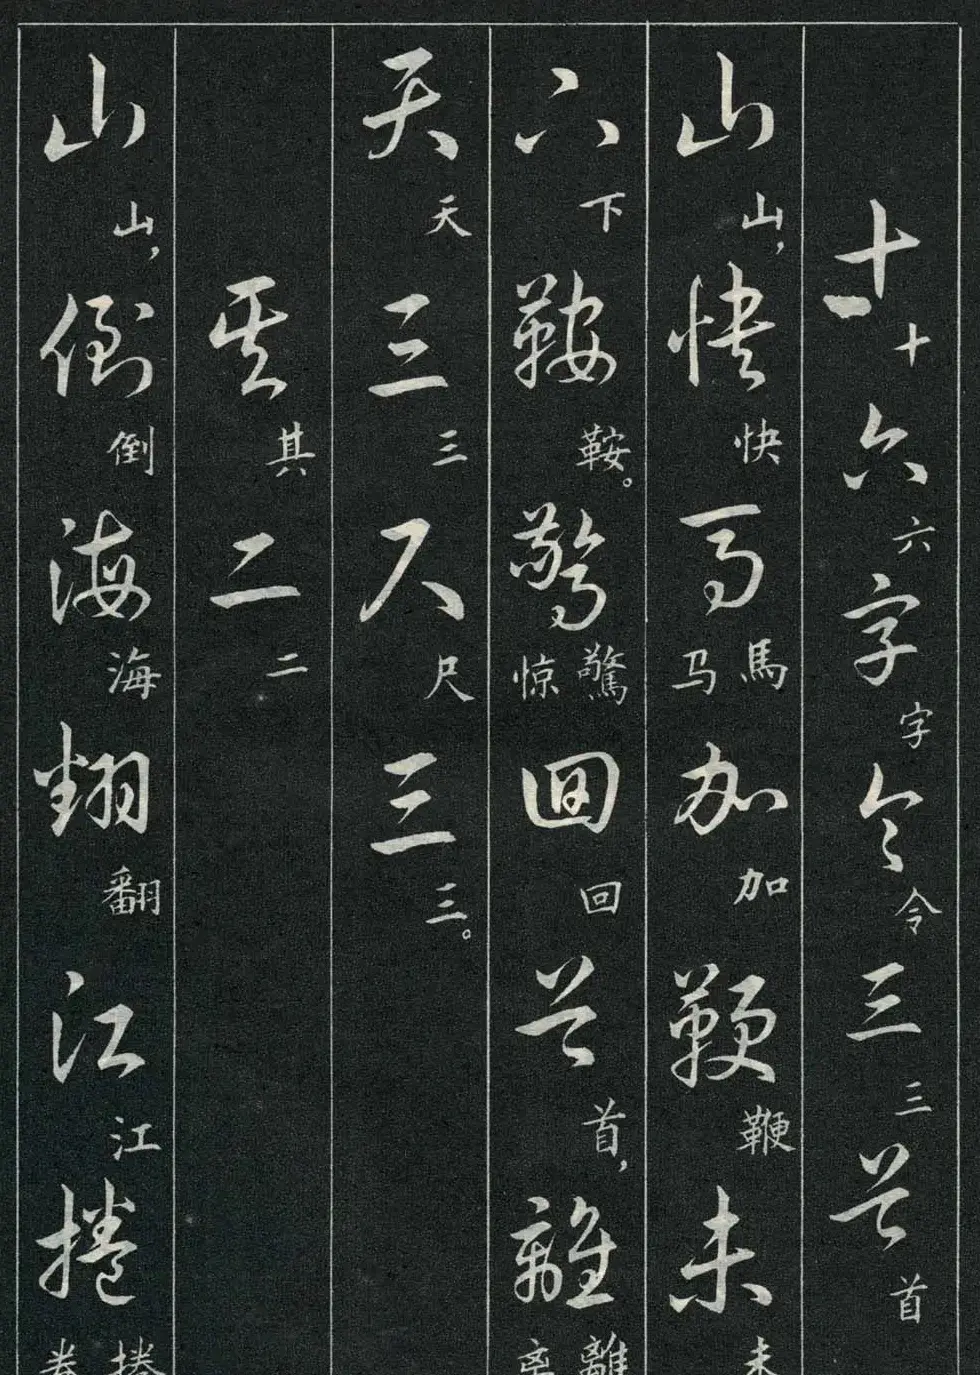 十十六六字字令令三三首首
山山，快快馬馬马加加鞭鞭未未
下下鞍鞍。驚驚惊回回首首，離離离
天天三三尺尺三三。
其其二二
山山，倒倒海海翻翻江江捲捲卷